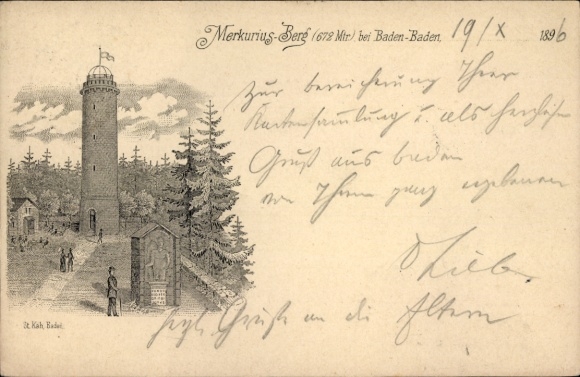 Merkurius-Berg (672 Mtr) bei Baden-Baden, 19/X 1896
Zur bereicherung Ihrer
Kartensammlung u. als herzlichen
Gruß aus baden
von Ihrem ganz ergebenen
herzl. Grüße an die Eltern
St. Kath. Badel.